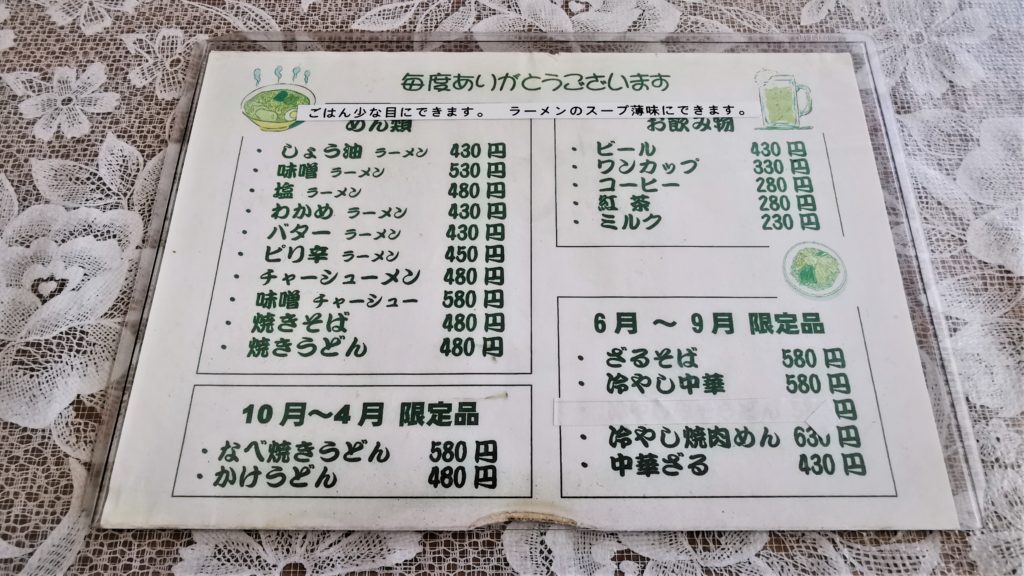 毎度ありがとうございます
ごはん少な目にできます。 ラーメンのスープ薄味にできます。
めん類
・しょう油 ラーメン 430円
・味噌 ラーメン 530円
・塩 ラーメン 480円
・わかめ ラーメン 430円
・バター ラーメン 430円
・ピり辛 ラーメン 450円
・チャーシューメン 480円
・味噌 チャーシュー 580円
・焼きそば 480円
・焼きうどん 480円
10月～4月 限定品
・なべ焼きうどん 580円
・かけうどん 480円
お飲み物
・ビール 430円
・ワンカップ 330円
・コーヒー 280円
・紅茶 280円
・ミルク 230円
6月 ～ 9月 限定品
・ざるそば 580円
・冷やし中華 580円
円
・冷やし焼肉めん 630円
・中華ざる 430円